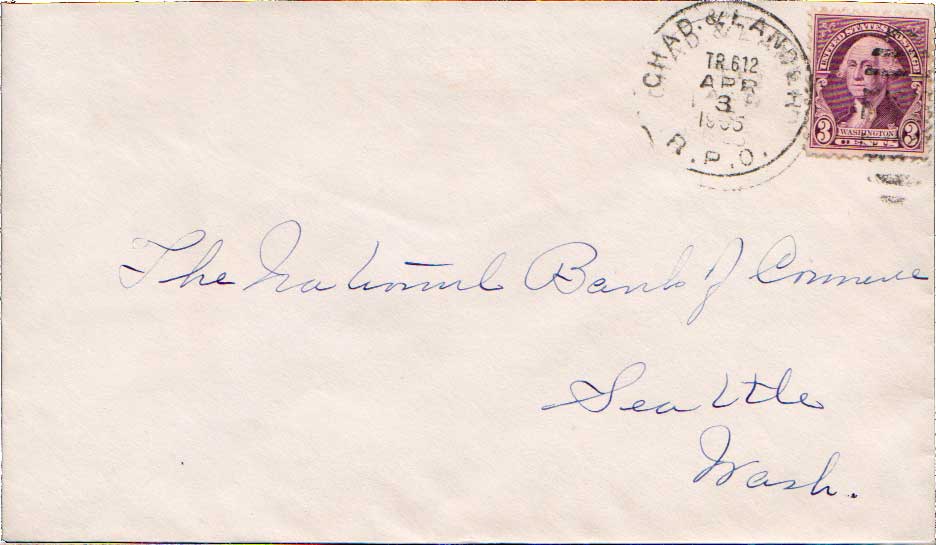 CHAD. & LANDER.
TR.612
APR
3
1935
R.P.O.
UNITED STATES POSTAGE
3 WASHINGTON 3
CENTS
The National Bank of Commerce
Seattle
Wash.